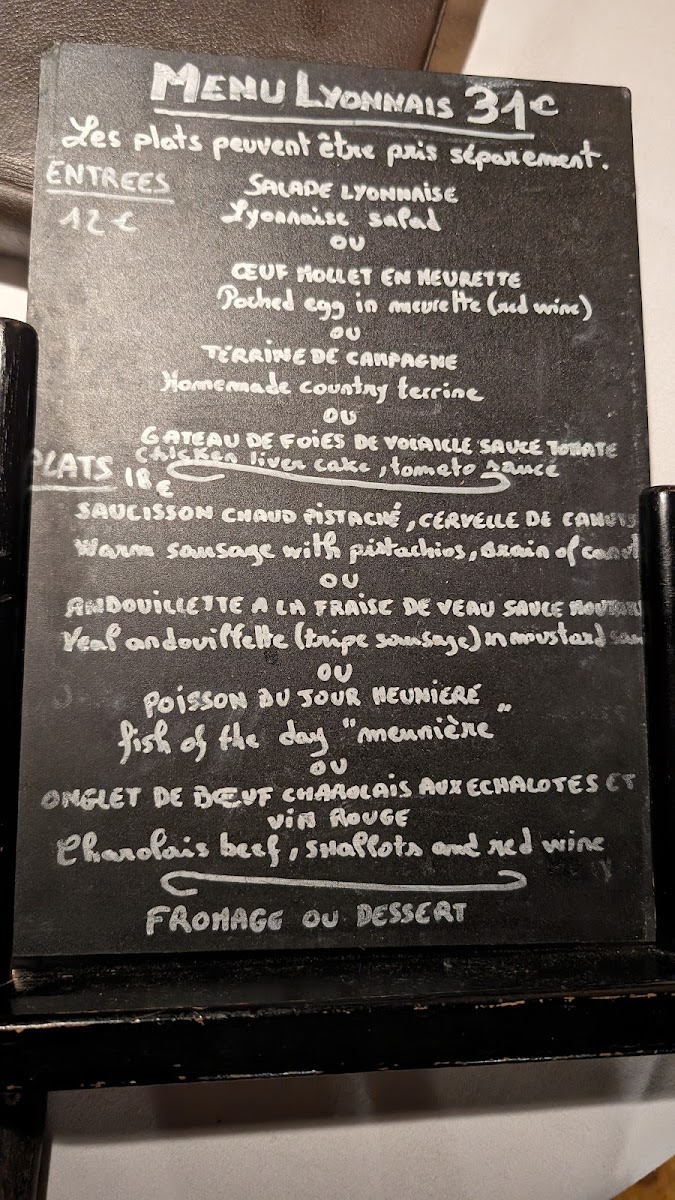 MENU LYONNAIS 31€
Les plats peuvent être pris séparement.
ENTREES
12 €
SALADE LYONNAISE
Lyonnaise salad
OU
ŒUF MOLLET EN MEURETTE
Poched egg in meurette (red wine)
OU
TERRINE DE CAMPAGNE
Homemade country terrine
OU
GATEAU DE FOIES DE VOLAILLE SAUCE TOMATE
Chicken liver cake, tomato sauce
PLATS 18 €
SAUCISSON CHAUD PISTACHÉ, CERVELLE DE CANUTS
Warm sausage with pistachios, brain of canut
OU
ANDOUILLETTE A LA FRAISE DE VEAU SAUCE
Veal andouillette (tripe sausage) in moustard
OU
POISSON DU JOUR MEUNIERE
fish of the day "meunière"
OU
ONGLET DE BŒUF CHAROLAIS AUX ECHALOTES ET
VIN ROUGE
Charolais beef, shallots and red wine
FROMAGE OU DESSERT